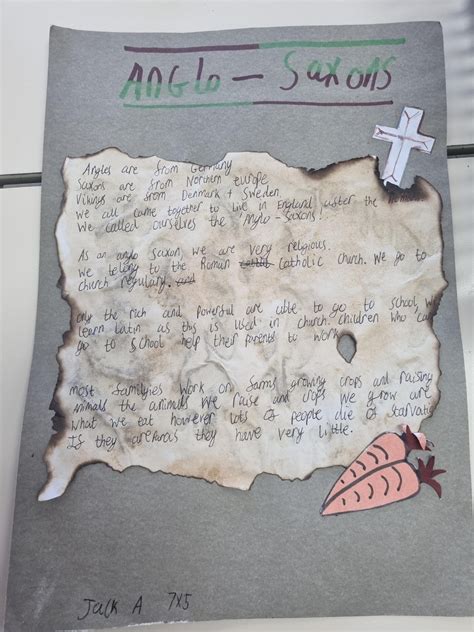 Anglo - Saxons
Angles are from Germany
Saxons are from Northern europe
Vikings are from Denmark + Sweden
We all come together to live in England after the
We called ourselves the 'Anglo - Saxons'
As an anglo Saxon we are very religious.
We belong to the Roman Catholic church. We go to
church regulary. and
ony the rich and powerful are able to go to school, we
learn latin as this is used in church. Children who
go to school help their parents to work
most familyies work on farms growing crops and raising
animals the animals we raise and crops we grow are
what we eat however lots of people die of
If they are they have very little.
Jack A 7X5